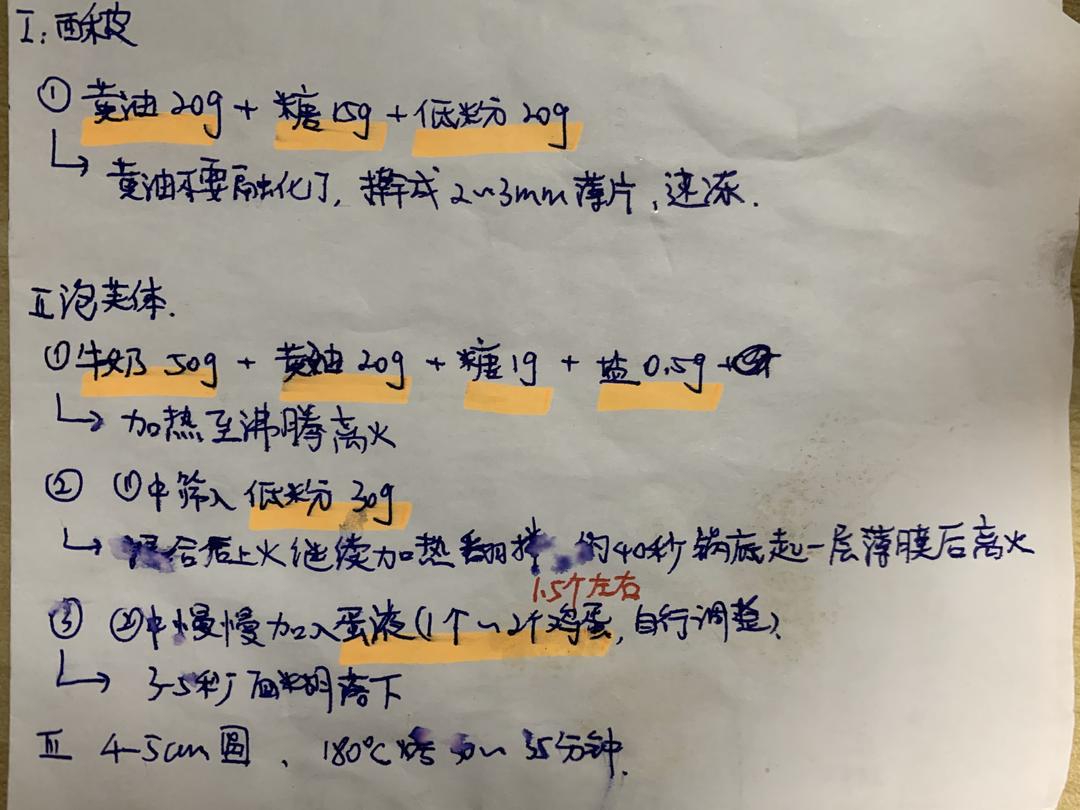 I: 酥皮
① 黄油 20g + 糖 15g + 低粉 20g
↳ 黄油不要融化了, 擀成 2~3mm 薄片, 速冻.
II 泡芙体.
① 牛奶 50g + 黄油 20g + 糖 1g + 盐 0.5g +
↳ 加热至沸腾离火
② ①中筛入 低粉 30g
↳ 混合后上火继续加热翻拌 约40秒锅底起一层薄膜后离火
1.5个左右
③ ②中慢慢加入蛋液(1个~2个鸡蛋, 自行调整)
↳ 3-5秒面糊落下
III 4-5cm 圆 、 180℃烤 ~ 35分钟.